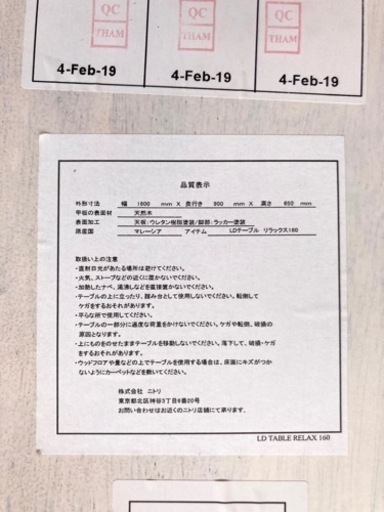 QC
THAM
4-Feb-19
QC
THAM
4-Feb-19
QC
THAM
4-Feb-19
品質表示
外形寸法： 幅 1600 mm X 奥行き 900 mm X 高さ 650 mm
甲板の表面材 天然木
表面加工 天板：ウレタン樹脂塗装/脚部：ラッカー塗装
原産国 マレーシア アイテム LDテーブル リラックス160
取扱い上の注意
・直射日光があたる場所は避けてください。
・火気、ストーブなどの近くに置かないでください。
・加熱したナベ、湯沸しなどを直接置かないでください。
・テーブルの上に立ったり、踏み台として使用しないでください。転倒して
ケガをするおそれがあります。
・平らな所で使用してください。
・テーブルの一部分に過度な荷重をかけないでください。ケガや転倒、破損の
原因となります。
・上にものをのせたままテーブルを移動しないでください。落下して、破損・ケガ
をするおそれがあります。
・ウッドフロアや畳などの上でテーブルを使用する場合は、床面にキズがつか
ないようにカーペットなどを敷いてください。
株式会社 ニトリ
東京都北区神谷3丁目6番20号
お問い合わせはお近くのニトリ店舗にて承ります。
LD TABLE RELAX 160